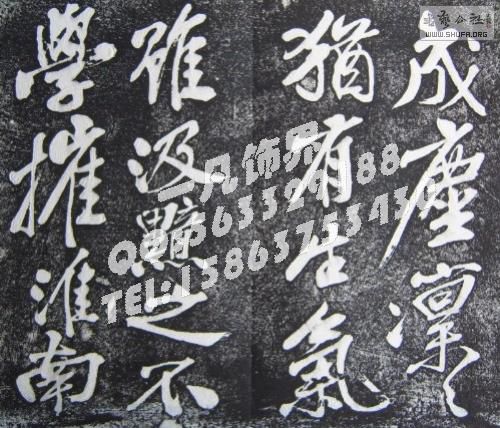 成塵凜々
猶有生氣
雖汲黯之不
學摧淮南
一凡饰界
TEL:15863753430
書藝公社
WWW.SHUFA.ORG